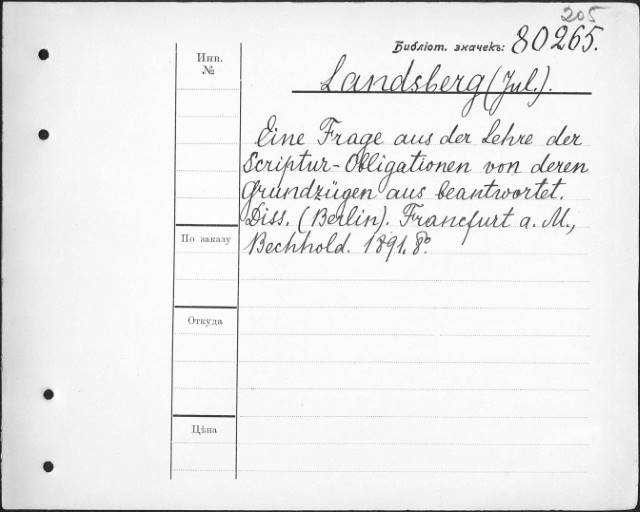 205
Библіот. значекъ: 80265.
Инв.
№
Landsberg (Jul.).
Eine Frage aus der Lehre der
Scriptur-Obligationen von deren
Grundzügen aus beantwortet.
Diss. (Berlin). Francfurt a. M.,
Bechhold. 1891. 8°.
По заказу
Откуда
Цѣна